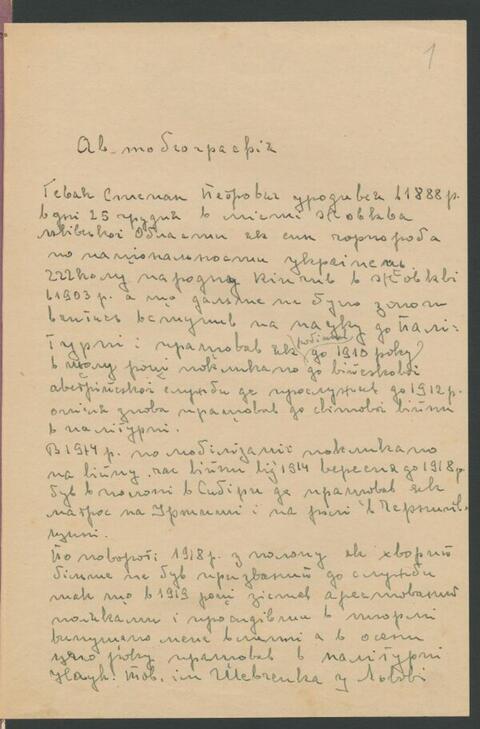 1
Ав-тобеографія
Гевак Степан Петрович уродився в 1888 р.
в дні 25 грудня в місті Жовква
Львівської Области як син чорнороба
по національности українець
школу народну кінчив в Жовкві
в 1903 р. а що дальше не було
вчитись вступив на науку до Палі-
турні і працював як робітник до 1910 року
в тому році покликано до військової
австрійської служби де прослужив до 1912 р.
опісля знова працював до світової війни
в палітурні.
В 1914 р. по мобілізації покликано
на війну. час війни від 1914 вересня до 1918 р
був в полоні в Сибіри де працював як
матрос на Іртиші і на ролі в
щині.
По повороті 1918 р. з полону як хворий
більше не був призваний до служби
так що в 1919 році зістав арештований
поляками і просидівши в тюрмі
випущано мене в літі а в осени
цего року працював в палітурні
Наук. Тов. ім Шевченка у Львові